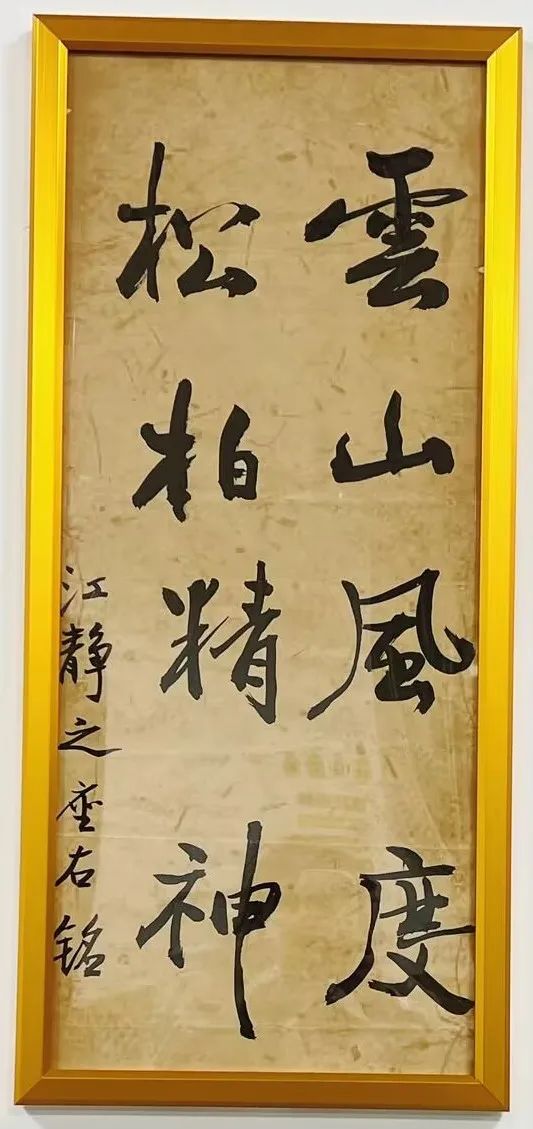 雲山風度
松柏精神
江靜之座右铭